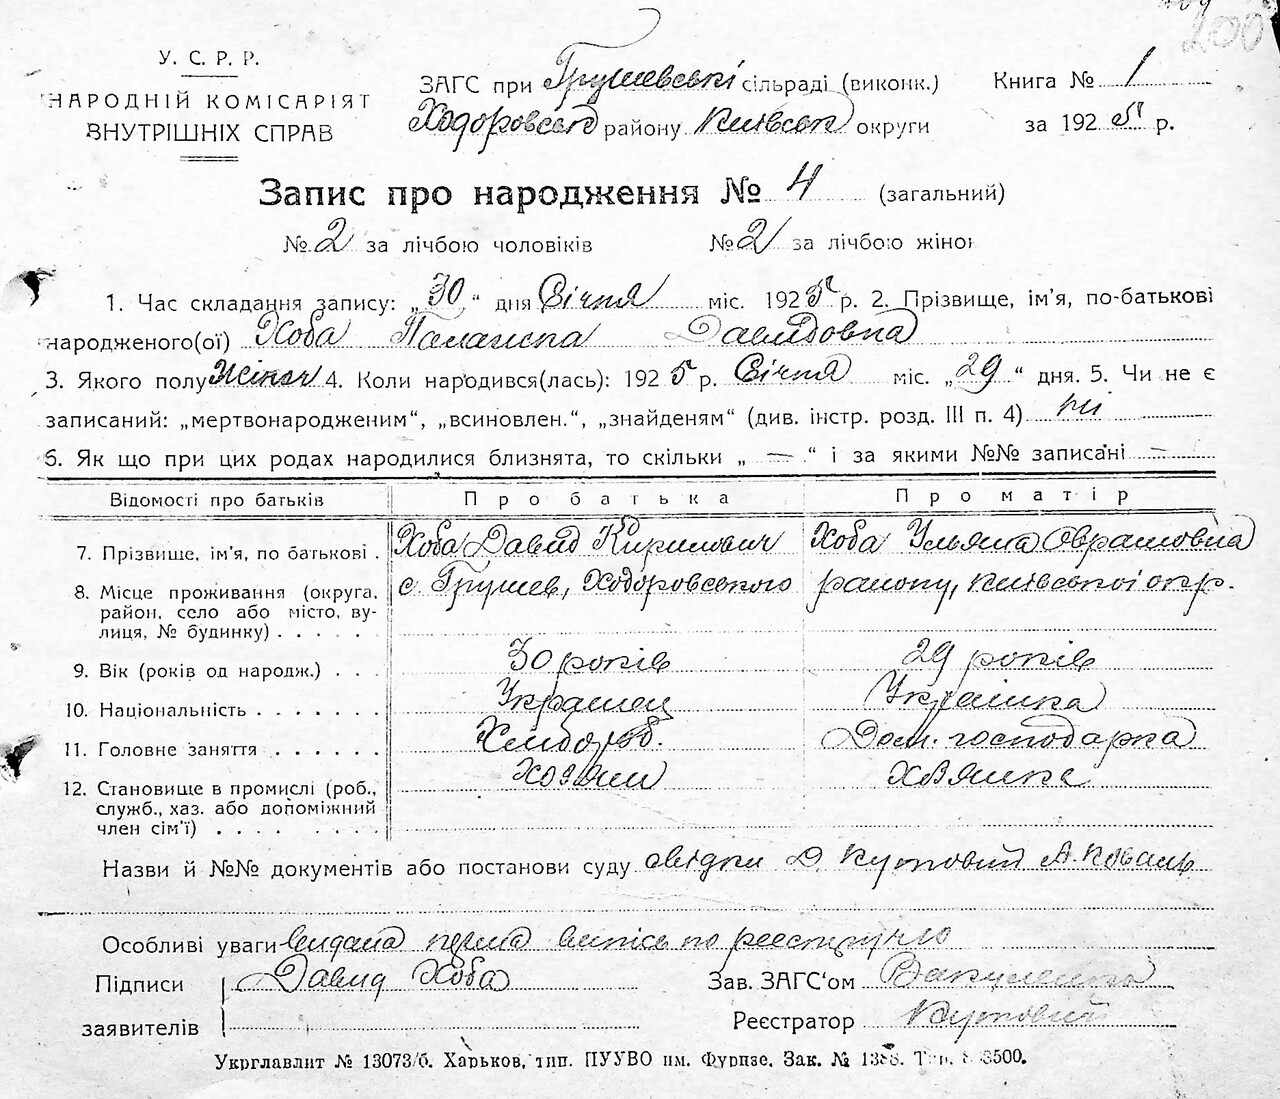 200
У. С. Р. Р.
НАРОДНІЙ КОМІСАРІЯТ
ВНУТРІШНІХ СПРАВ
ЗАГС при Грушевські сільраді (виконк.)
Ходоровськ району Київськ округи
Книга № 1
за 1925 р.
Запис про народження № 4 (загальний)
№ 2 за лічбою чоловіків № 2 за лічбою жінок
1. Час складання запису: „30" дня Січня міс. 1925 р. 2. Прізвище, ім'я, по-батькові
народженого(ої) Хоба Палажка Давидовна
3. Якого полу жіноч 4. Коли народився(лась): 1925 р. Січня міс. „29" дня. 5. Чи не є
записаний: „мертвонародженим", „всиновлен.", „знайденям" (див. інстр. розд. III п. 4) ні
6. Як що при цих родах народилися близнята, то скільки „ — " і за якими №№ записані —
Відомості про батьків Про батька Про матір
7. Прізвище, ім'я, по батькові . Хоба Давид Кирилович Хоба Ульяна Оврамовна
8. Місце проживання (округа, с. Грушев, Ходоровського району, Київської окр.
район, село або місто, ву-
лиця, № будинку) . . . . .
9. Вік (років од народж.) . . . 30 років 29 років
10. Національність . . . . . . . Українец Українка
11. Головне заняття . . . . . . Хлібороб. Дом. господарка
12. Становище в промислі (роб., хозяин хазяйка
служб., хаз. або допоміжний
член сім'ї) . . . . . . . .
Назви й №№ документів або постанови суду свідки Д. Кутовий А. Коваль
Особливі уваги видана перша випісь по реєстру №10
Підписи Давид Хоба Зав. ЗАГС'ом Вакуленко
заявителів Реєстратор Кутовий
Укрглавлит № 13073/б. Харьков, тип. ПУУВО им. Фрунзе, Зак. №